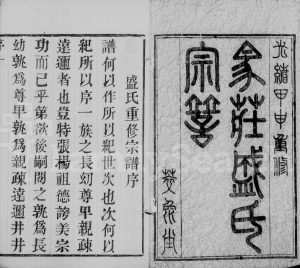 光緒甲申重修
象莊盛氏
宗譜
盛氏重修宗譜序
譜何以作所以紀世次也次何以
紀所以序一族之長幼尊卑親疎
遠邇者也豈特張揚祖德誇美宗
功而已乎第欲後嗣閱之孰爲長
幼孰爲尊卑孰爲親疎遠邇井井
序一